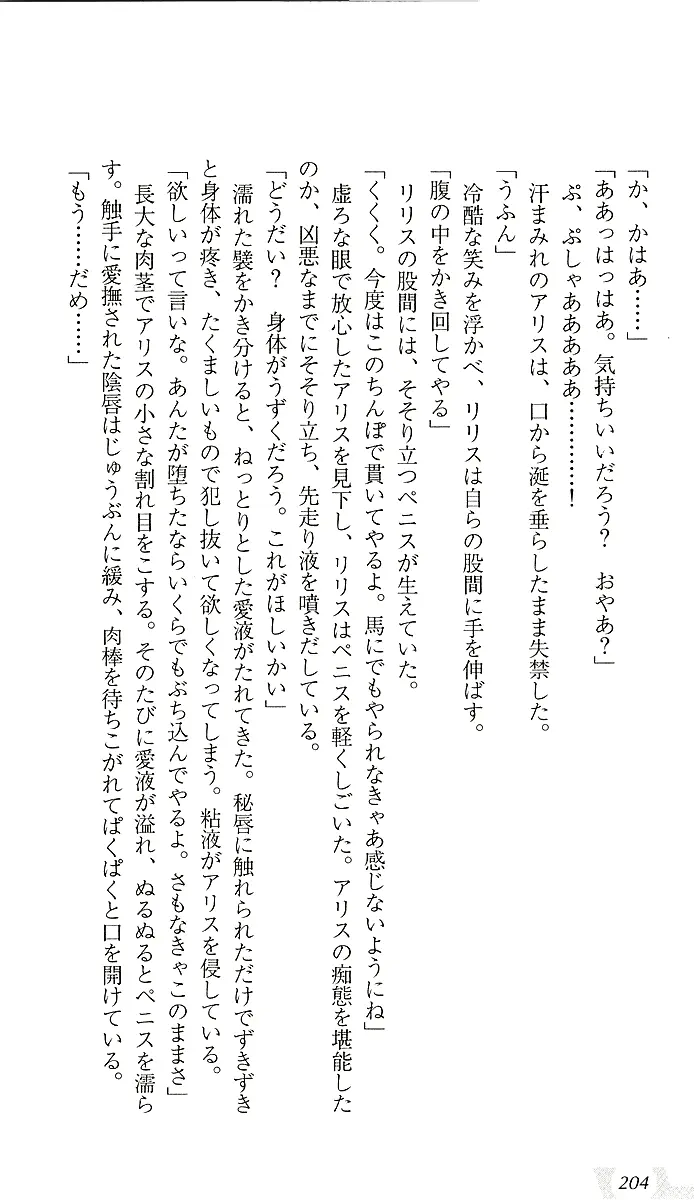 「か、かはあ……」
「ああっはっはあ。気持ちいいだろう？　おやあ？」
ぷ、ぷしゃああああぁ…………！
汗まみれのアリスは、口から涎を垂らしたまま失禁した。
「うふん」
冷酷な笑みを浮かべ、リリスは自らの股間に手を伸ばす。
「腹の中をかき回してやる」
リリスの股間には、そそり立つペニスが生えていた。
「くくく。今度はこのちんぽで貫いてやるよ。馬にでもやられなきゃあ感じないようにね」
虚ろな眼で放心したアリスを見下し、リリスはペニスを軽くしごいた。アリスの痴態を堪能した
のか、凶悪なまでにそそり立ち、先走り液を噴きだしている。
「どうだい？　身体がうずくだろう。これがほしいかい」
濡れた襞をかき分けると、ねっとりとした愛液がたれてきた。秘唇に触れられただけでずきずき
と身体が疼き、たくましいもので犯し抜いて欲しくなってしまう。粘液がアリスを侵している。
「欲しいって言いな。あんたが堕ちたならいくらでもぶち込んでやるよ。さもなきゃこのままさ」
長大な肉茎でアリスの小さな割れ目をこする。そのたびに愛液が溢れ、ぬるぬるとペニスを濡ら
す。触手に愛撫された陰唇はじゅうぶんに緩み、肉棒を待ちこがれてぱくぱくと口を開けている。
「もう……だめ……」
204